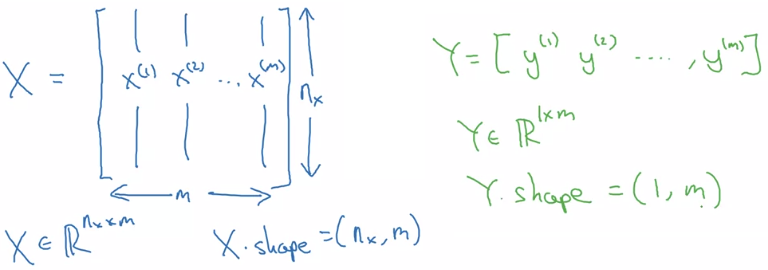 X = [ x^(1) x^(2) ... x^(m) ] n_x
m
X ∈ ℝ^(n_x × m)
X.shape = (n_x, m)
Y = [ y^(1) y^(2) ...., y^(m) ]
Y ∈ ℝ^(1×m)
Y.shape = (1, m)